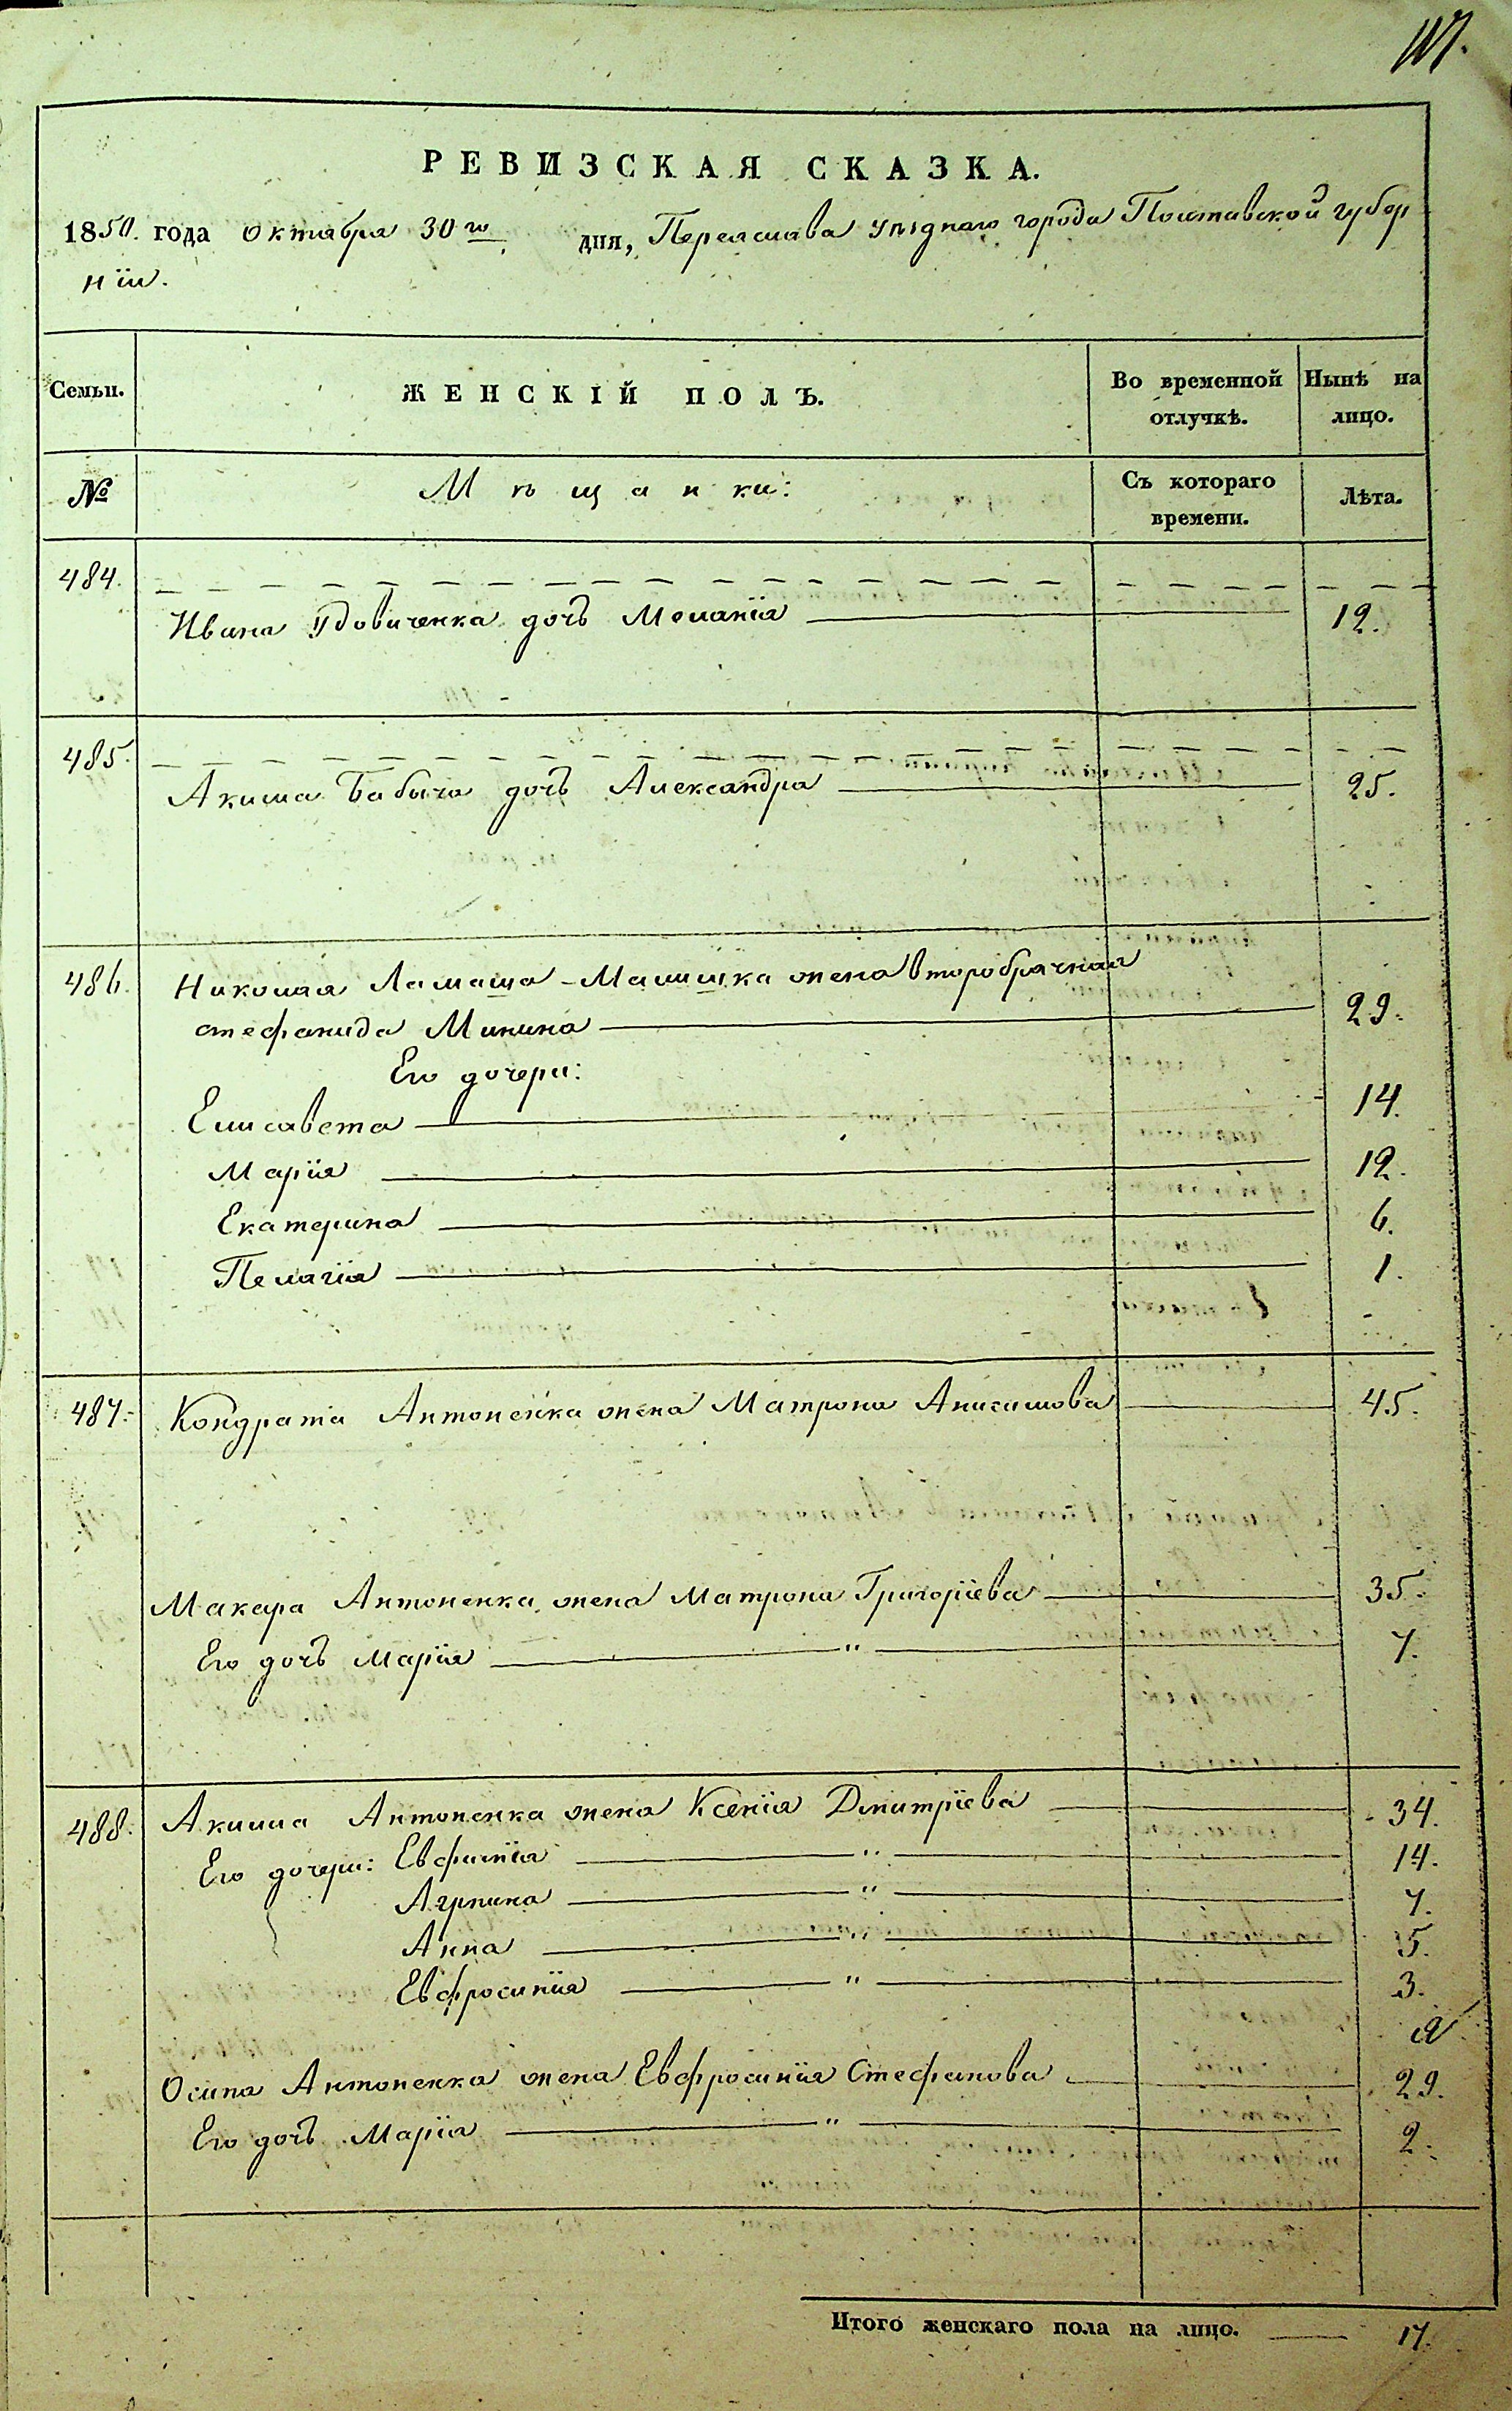 РЕВИЗСКАЯ СКАЗКА.
1850. года октября 30 го дня, Переяслава уѣзднаго города Полтавской губер
нїи.
Семьи. ЖЕНСКІЙ ПОЛЪ. Во временной отлучкѣ. Нынѣ на лицо.
№ Мѣщанки: Съ котораго времени. Лѣта.
484.
Ивана Удовиченка дочь Меланїя 12.
485.
Акима Бабича дочь Александра 25.
486. Николая Ламаша-Малишка жена второбрачная
Стефанида Минина 29.
Его дочери:
Елисавета 14.
Марїя 12.
Екатерина 6.
Пелагїя 1.
487. Кондрата Антоненка жена Матрона Анисимова 45.
Макара Антоненка жена Матрона Григорїева 35.
Его дочь Марїя " 7.
488. Акима Антоненка жена Ксенїя Дмитрїева 34.
Его дочери: Евфимїя " 14.
Агрпина " 7.
Анна " 5.
Евфросинїя " 3.
Осипа Антоненка жена Евфросинїя Стефанова 29.
Его дочь Марїя " 2.
Итого женскаго пола на лицо. 17.